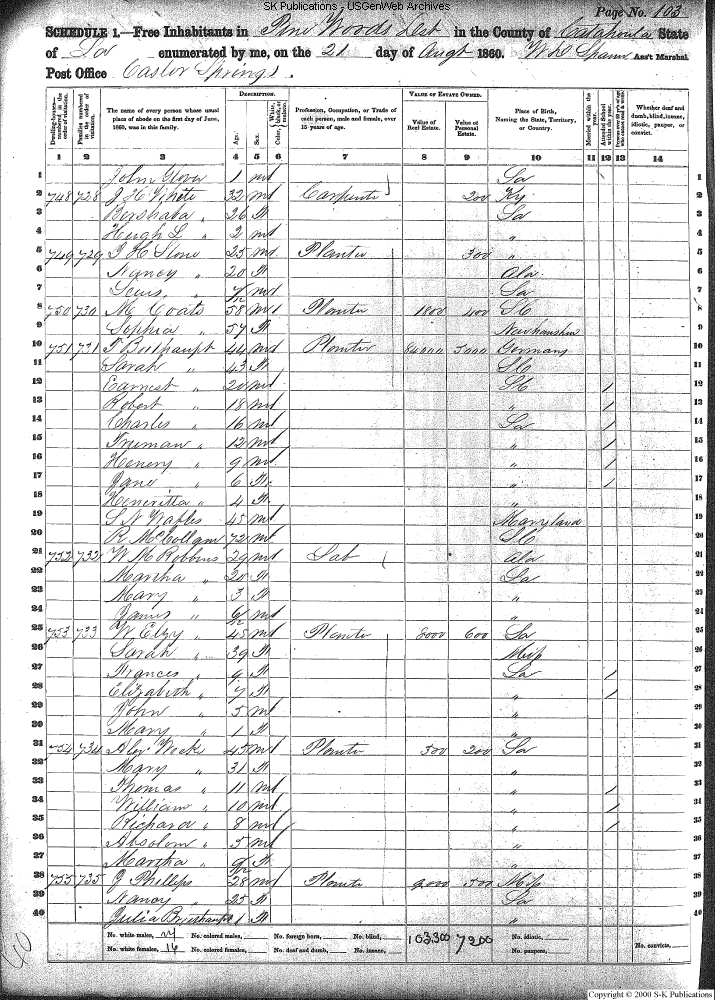 SK Publications - USGenWeb Archives
Page No. 103
SCHEDULE 1.—Free Inhabitants in Pine Woods Dist in the County of Catahoula State
of La enumerated by me, on the 21 day of Augt 1860. Ass't Marshal.
Post Office Castor Springs.
Dwelling-houses—numbered in the order of visitation.
Families numbered in the order of visitation.
The name of every person whose usual place of abode on the first day of June, 1860, was in this family.
DESCRIPTION.
Age.
Sex.
Color, White, black, or mulatto.
Profession, Occupation, or Trade of each person, male and female, over 15 years of age.
VALUE OF ESTATE OWNED.
Value of Real Estate.
Value of Personal Estate.
Place of Birth, Naming the State, Territory, or Country.
Married within the year.
Attended School within the year.
Whether deaf and dumb, blind, insane, idiotic, pauper, or convict.
1 2 3 4 5 6 7 8 9 10 11 12 13 14
1 John Glover 1 m La 1
2 748 728 J H White 32 m Carpenter 200 Ky 2
3 Bershaba " 26 f La 3
4 Hugh L " 2 m " 4
5 749 729 J H Stone 25 m Planter 300 " 5
6 Nancy " 20 f Ala 6
7 m La 7
8 750 730 M Coats 58 m Planter 1800 400 SC 8
9 Sophia " 57 f 9
10 751 731 44 m Planter 84000 5000 Germany 10
11 Sarah " 43 f SC 11
12 Earnest " 20 m SC / 12
13 Robert " 18 m " / 13
14 Charles " 16 m La / 14
15 Truman " 12 m " / 15
16 Henery " 9 m " / 16
17 Jane " 6 f " / 17
18 Heneritta " 4 f " 18
19 S N Waples 45 m Maryland 19
20 R McCollam 72 m SC 20
21 752 732 W M Robbins 29 m Lab Ala 21
22 Martha " 20 f La 22
23 Mary " 3 f " 23
24 James " m " 24
25 753 733 W Elzy 45 m Planter 8000 600 La 25
26 Sarah " 39 f Miss 26
27 Frances " 9 f La / 27
28 Elizabeth " 7 f " / 28
29 John " 5 m " 29
30 Mary " 1 f " 30
31 754 734 Alex Weeks 45 m Planter 500 200 La 31
32 Mary " 31 f " 32
33 Thomas " 11 m " / 33
34 William " 10 m " / 34
35 Richard " 8 m " / 35
36 Absolom " 5 m " 36
37 Martha " f " 37
38 755 735 J Phillips 28 m Planter 500 Miss 38
39 Nancy " 25 f La 39
40 Julia 1 f " 40
No. white males, 24 No. colored males, No. foreign born, No. blind, 103,300 7200 No. idiotic,
No. white females, 16 No. colored females, No. deaf and dumb, No. insane, No. paupers, No. convicts,
Copyright © 2000 S-K Publications